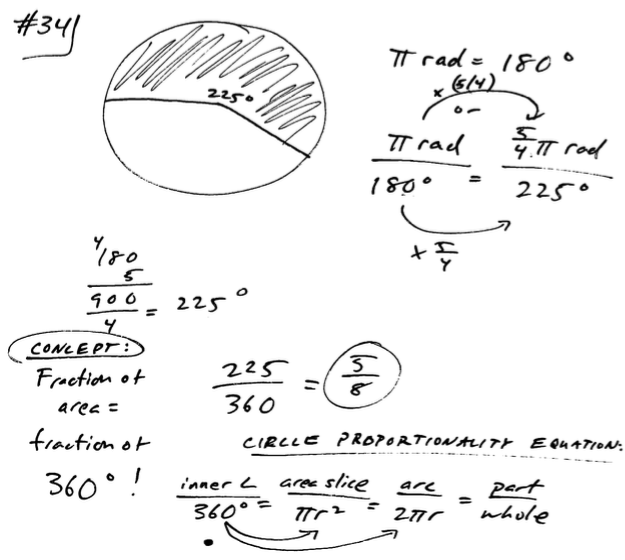 #34
225°
π rad = 180°
× (5/4)
π rad / 180° = 5/4 π rad / 225°
× 5/4
4
180
5
900 / 4 = 225°
CONCEPT:
Fraction of
area =
fraction of
360°!
225 / 360 = 5/8
CIRCLE PROPORTIONALITY EQUATION:
inner ∠ / 360° = area slice / πr² = arc / 2πr = part / whole